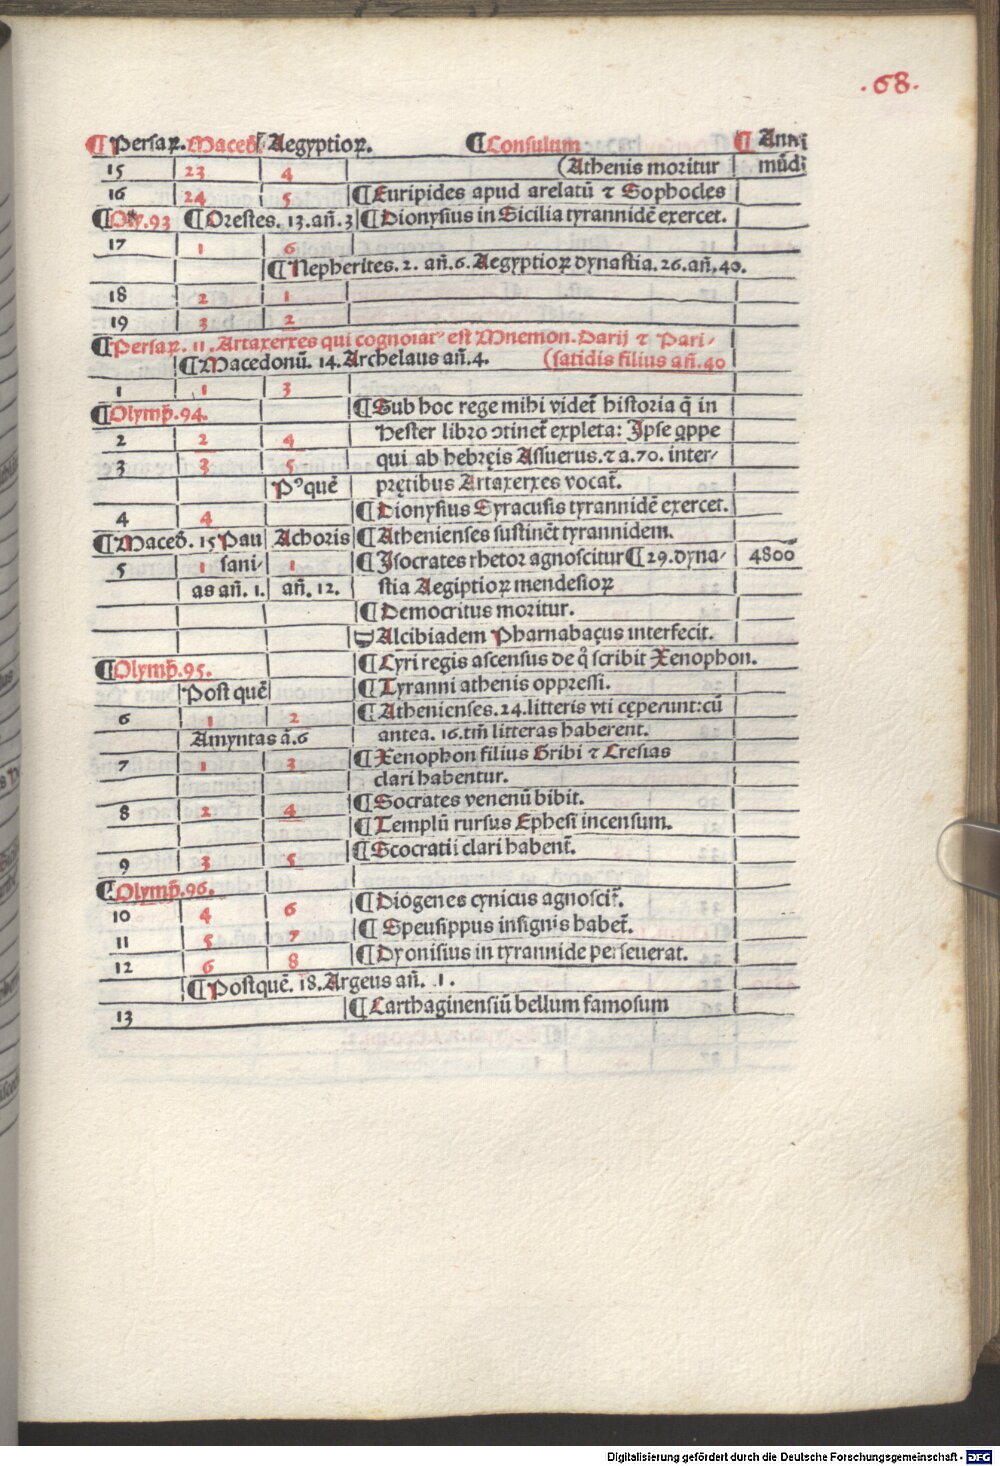 .68.
¶ Persaꝝ. Macedõ. Aegyptioꝝ. ¶ Consulum ¶ Anni
15 23 4 (Athenis moritur mũdi
16 24 5 ¶ Euripides apud arelatũ ⁊ Sophocles
¶ Oly.93 ¶ Orestes. 13. añ. 3 ¶ Dionysius in Sicilia tyrannidẽ exercet.
17 1 6
¶ Nepherites. 2. añ. 6. Aegyptioꝝ dynastia. 26. añ. 40.
18 2 1
19 3 2
¶ Persaꝝ. 11. Artaxerxes qui cognoĩat᷑ est Mnemon. Darij ⁊ Pari-
¶ Macedonũ. 14. Archelaus añ. 4. (satidis filius añ. 40
1 1 3
¶ Olymp̃. 94. ¶ Sub hoc rege mihi videt᷑ historia q̃ in
2 2 4 Hester libro ↄtinet᷑ expleta: Ipse ꝙppe
3 3 5 qui ab hebręis Assuerus. ⁊ a. 70. inter-
P⁹ quẽ prętibus Artaxerxes vocat᷑.
4 4 ¶ Dionysius Syracusis tyrannidẽ exercet.
¶ Macedõ. 15 Pau Achoris ¶ Athenienses sustinẽt tyrannidem.
5 1 sani- 1 ¶ Isocrates rhetor agnoscitur ¶ 29. dyna- 4800
as añ. 1. añ. 12. stia Aegiptioꝝ mendesioꝝ
¶ Democritus moritur.
Alcibiadem Pharnabaçus interfecit.
¶ Olymp̃. 95. ¶ Cyri regis ascensus de q̊ scribit Xenophon.
Post quẽ ¶ Tyranni athenis oppressi.
6 1 2 ¶ Athenienses. 24. litteris vti cęperunt: cũ
Amyntas ã. 6 antea. 16. tm̃ litteras haberent.
7 1 3 ¶ Xenophon filius Gribi ⁊ Cresias
clari habentur.
8 2 4 ¶ Socrates venenũ bibit.
¶ Templũ rursus Ephesi incensum.
9 3 5 ¶ Scocratii clari habent᷑.
¶ Olymp̃. 96.
10 4 6 ¶ Diogenes cynicus agnosciť.
11 5 7 ¶ Speusippus insignis habet᷑.
12 6 8 ¶ Dyonisius in tyrannide perseuerat.
¶ Postquẽ. 18. Argeus añ. .1.
13 ¶ Carthaginensiũ bellum famosum
Digitalisierung gefördert durch die Deutsche Forschungsgemeinschaft - DFG